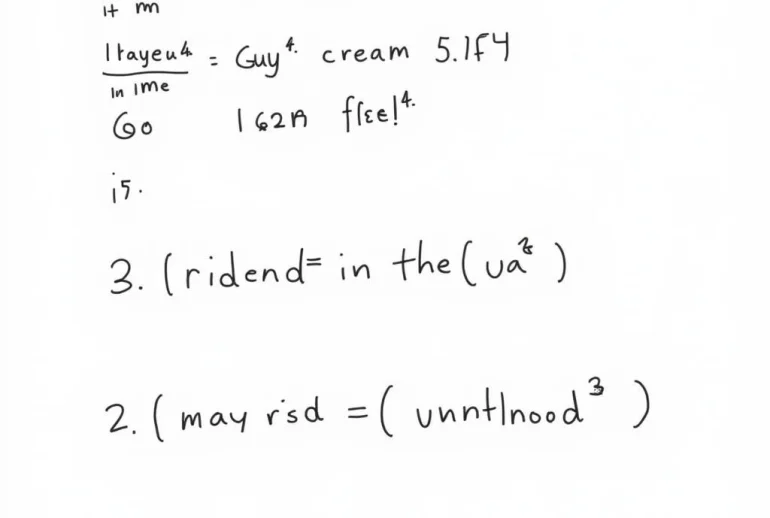 It m
Itayeu4 = Guy⁴· cream 5.1F4
In 1me
Go 162A flee!⁴·
i5.
3. (ridend= in the (ua² )
2. ( may r'sd = ( unntlnood³ )